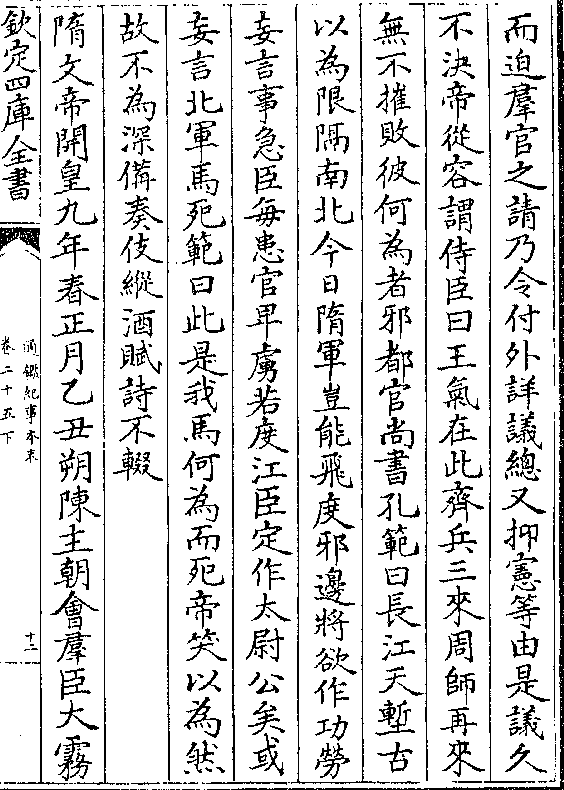 而迫羣官之請乃令付外詳議總又抑憲等由是議久
不決帝從容謂侍臣曰王氣在此齊兵三來周師再來
無不摧敗彼何為者邪都官尚書孔範曰長江天塹古
以為限隔南北今日隋軍豈能飛度邪邊將欲作功勞
妄言事急臣毎患官卑虜若度江臣定作太尉公矣或
妄言北軍馬死範曰此是我馬何為而死帝笑以為然
故不為深備奏伎縱酒賦詩不輟
隋文帝開皇九年春正月乙丑朔陳主朝會羣臣大霧
欽定四庫全書
通鑑紀事本末
卷二十五下
十二